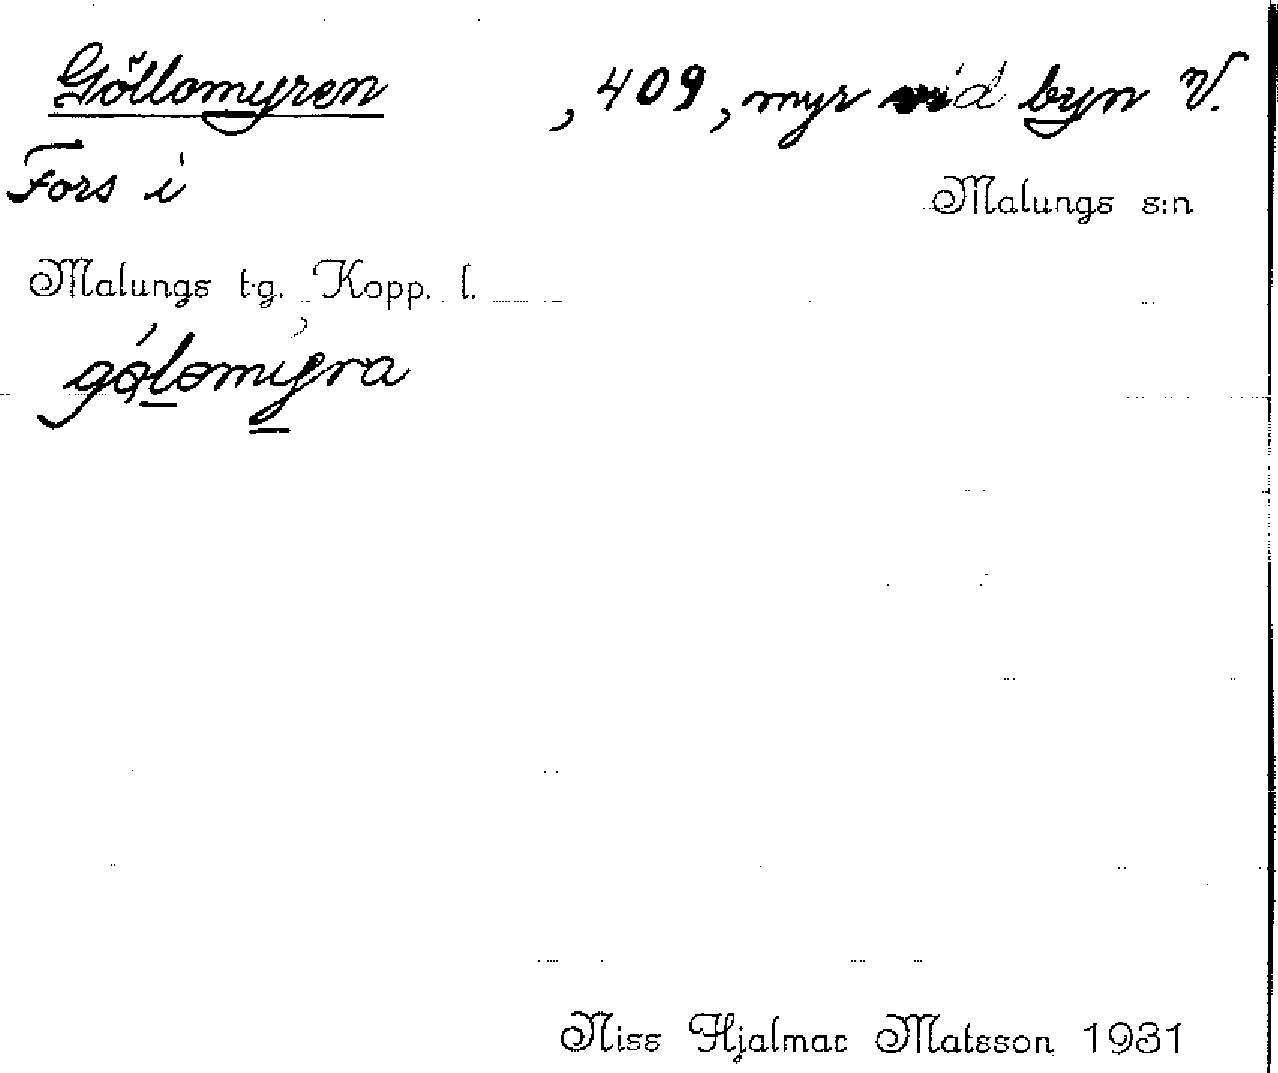 Göllomyren , 409, myr vid byn V.
Fors i
Malungs s:n
Malungs tg. Kopp. l.
Niss Hjalmar Matsson 1931